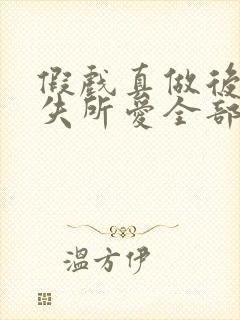 假戲真做後
失所愛全部
溫方伊